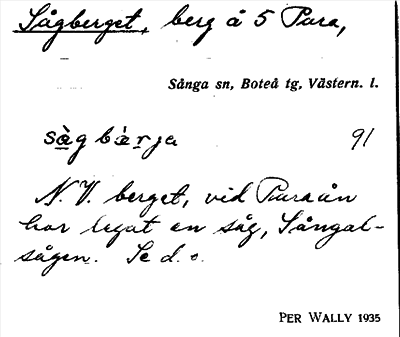 Sågberget, berg å 5 Para,
Sånga sn, Boteå tg, Västern. l.
sàg bàrja 91
N.V. berget, vid Paraån
har legat en såg, Sångal-
sågen. Se d. o.
PER WALLY 1935